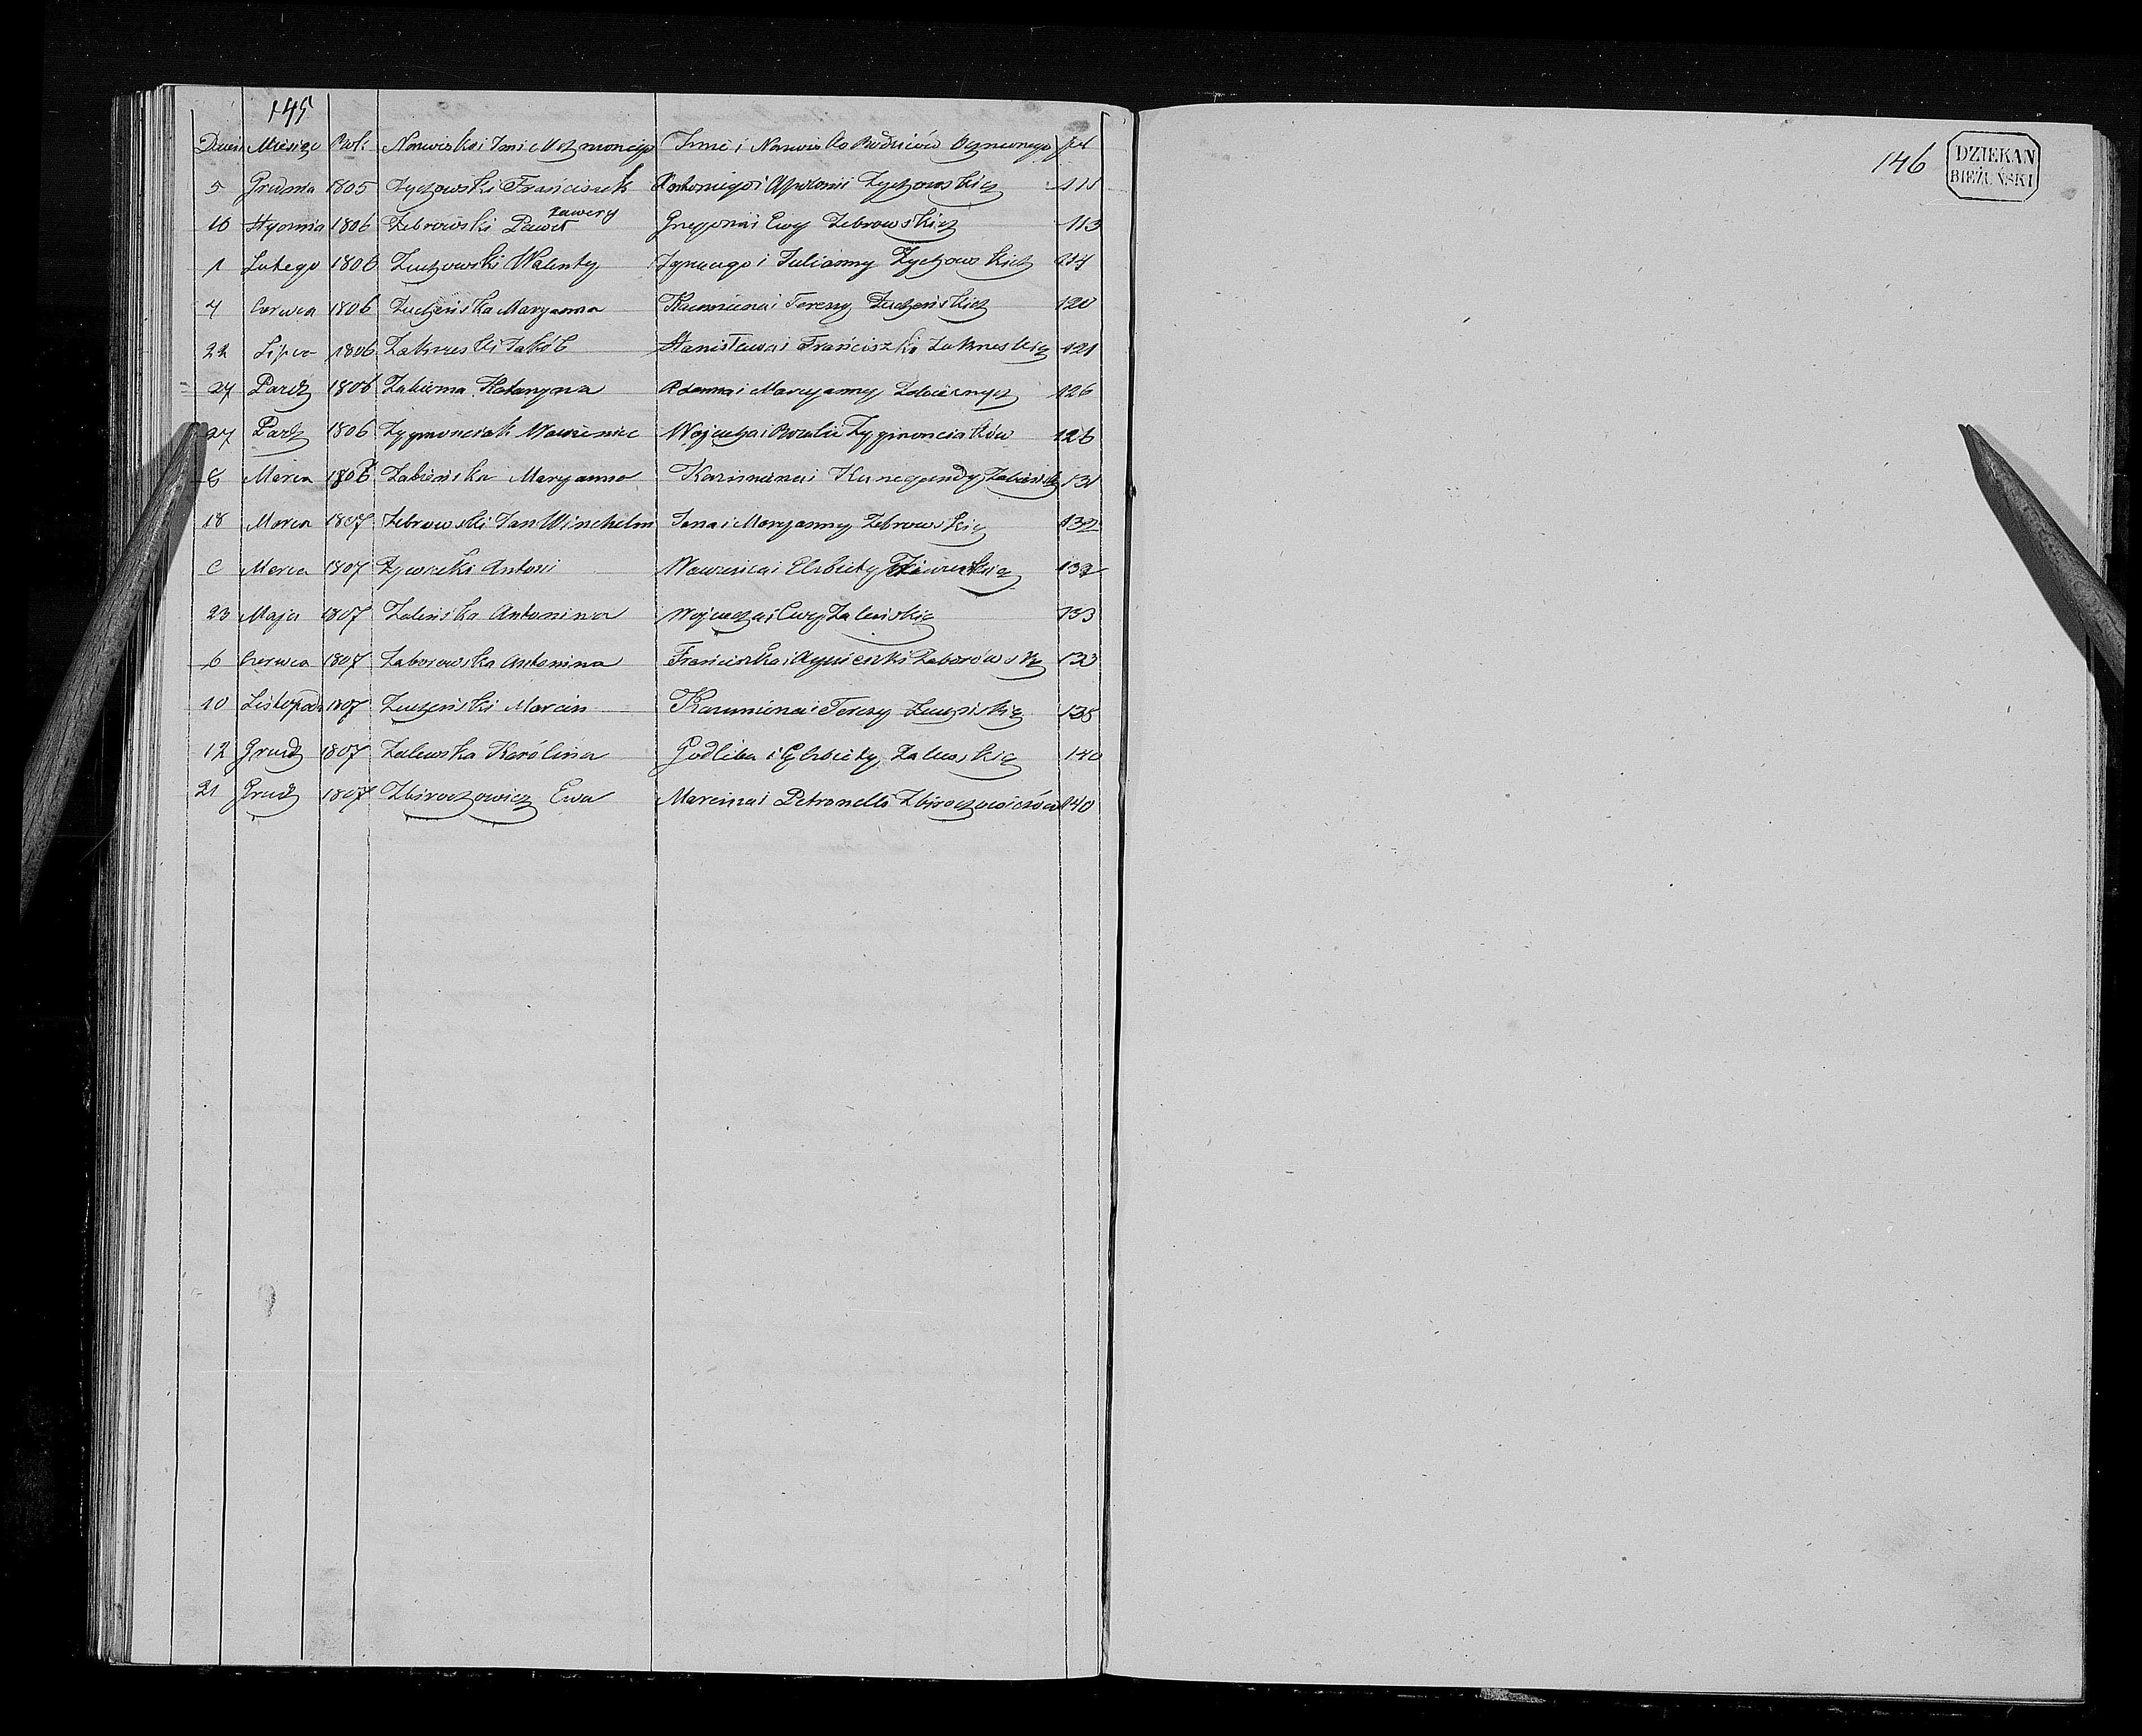 145
Dzień Miesiąc Rok Nazwisko i Imie Ochrzczonego Imie i Nazwisko Rodziców Ochrzczonego fol
5 Grudnia 1805 Zychowski Franciszek Antoniego i Apolonii Zychowskich 111
Xawery
16 Stycznia 1806 Zebrowski Paweł Grzegorza i Ewy Zebrowskich 113
1 Lutego 1806 Zuchowski Walenty Ignacego i Julianny Zychowskich 114
4 Czerwca 1806 Zuchenska Maryanna Kazmierza i Teresy Zuchenskich 120
22 Lipca 1806 Zakrzeski Jakób Stanisława i Franciszki Zakrzeskich 121
27 Pazdz 1806 Katarzyna Adama i Maryanny 126
27 Pazdz 1806 Zygmonciak Wawrzeniec Wojciecha i Rozalii Zygmonciaków 126
8 Marca 1806 Zabienska Maryanna Kazimierza i Kunegundy 131
18 Marca 1807 Zebrowski Jan Winchelm Jana i Maryanny Zebrowskich 132
Marca 1807 Antoni Wawrzenca i Elzbiety 132
23 Maja 1807 Zalenska Antonina Wojciecha i Ewy Zalenskich 133
6 Czerwca 1807 Zaborowska Antonina Franciszka i Agnieszki Zaborówsk 133
10 Listopada 1807 Zuchenski Marcin Kazmierza i Teresy 135
12 Grudz 1807 Zalewska Karólina Godliba i Elzbiety Zalewskich 140
21 Grudz 1807 Zbirochowicz Ewa Marcina i Petronelli Zbirochowiczów 140
146
DZIEKAN
BIEŻUŃSKI